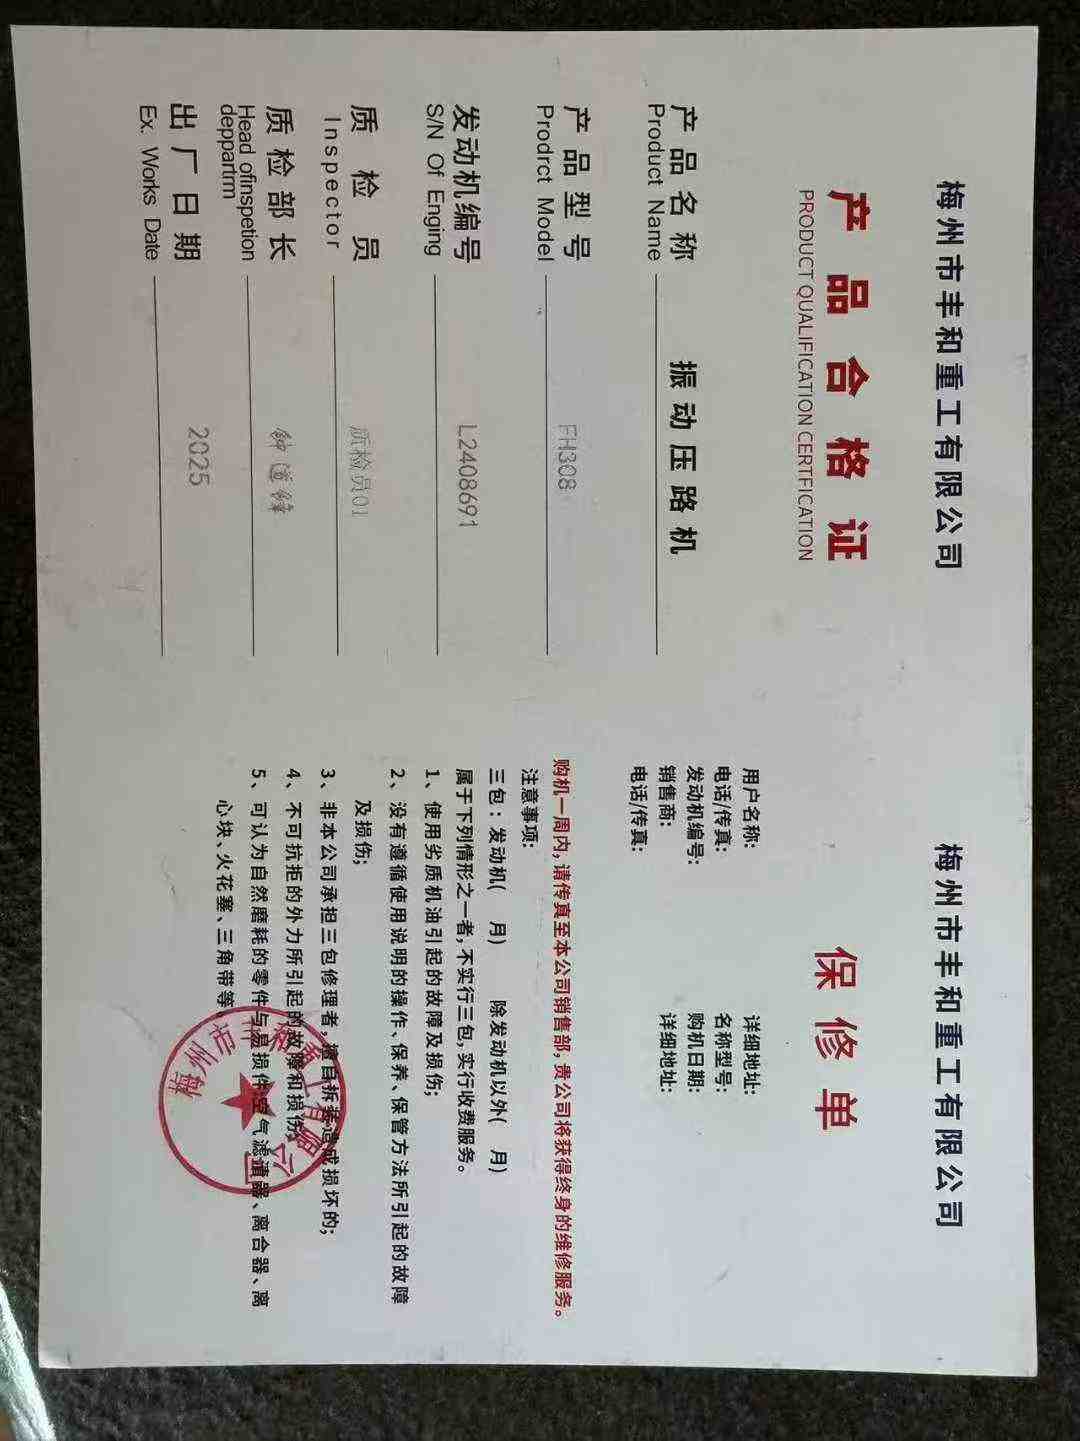 梅州市丰和重工有限公司
产品合格证
PRODUCT QUALIFICATION CERTFICATION
产品名称 振动压路机
Product Name
产品型号 FH308
Prodrct Model
发动机编号 L2408691
S/N Of Enging
质检员 质检员01
Inspector
质检部长
Head ofinspetion
deppartrm
出厂日期 2025
Ex. Works Date
梅州市丰和重工有限公司
保修单
用户名称: 详细地址:
电话/传真: 名称型号:
发动机编号: 购机日期:
销售商: 详细地址:
电话/传真:
购机一周内,请传真至本公司销售部,贵公司将获得终身的维修服务。
注意事项:
三包:发动机( 月) 除发动机以外( 月)
属于下列情形之一者,不实行三包,实行收费服务。
1、使用劣质机油引起的故障及损伤;
2、没有遵循使用说明的操作、保养、保管方法所引起的故障
及损伤;
3、非本公司承担三包修理者,擅自拆装造成损坏的;
4、不可抗拒的外力所引起的故障和损伤;
5、可认为自然磨耗的零件与易损件:空气滤清器、离合器、离
心块、火花塞、三角带等。
梅州市丰和重工有限公司